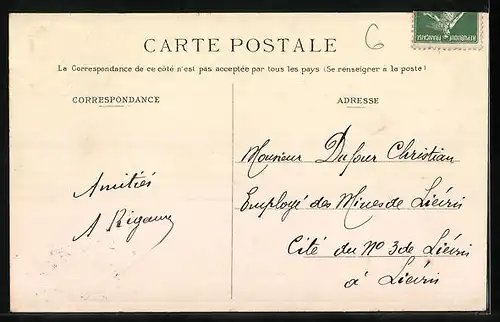 CARTE POSTALE
6
REPUBLIQUE FRANÇAISE
La Correspondance de ce côté n'est pas acceptée par tous les pays (Se renseigner à la poste)
CORRESPONDANCE
Amitiés
A Rigaux
ADRESSE
Monsieur Dufour Christian
Employé des Mines de Liévin
Cité du No 3 de Liévin
à Liévin